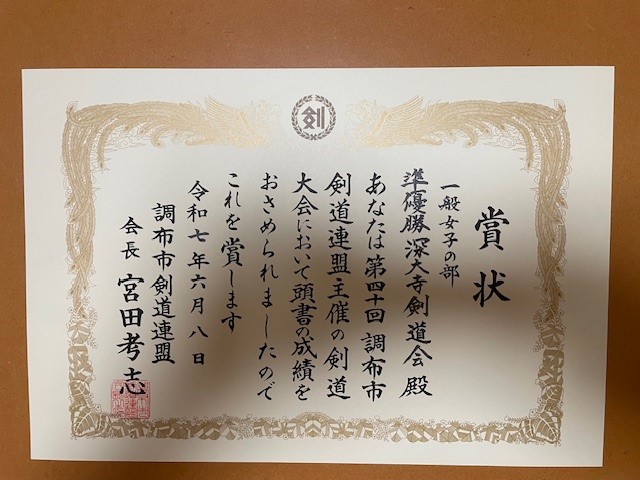 剣
賞状
一般女子の部
準優勝 深大寺剣道会 殿
あなたは第四十回 調布市
剣道連盟主催の剣道
大会において頭書の成績を
おさめられましたので
これを賞します
令和七年六月八日
調布市剣道連盟
会長 宮田考志